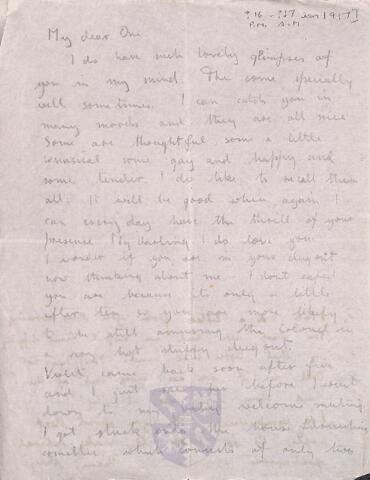 ? 16 - ? 17 Jan 1917
P.M. A.M.
My dear One
I do have such lovely glimpses of
you in my mind. The come specially
well sometimes. I can catch you in
many moods and they are all nice
Some are thoughtful, some a little
whimsical some gay and happy and
some tender. I do like to recall them
all. It will be good when again I
can every day have the thrill of your
presence. My darling I do love you.
I wonder if you are in your dugout
now thinking about me. I don't expect
you are because its only a little
after ten so you are more likely
to be still amusing the Colonel in
a very hot stuffy dugout.
Violet came back soon after five
and I just saw her before I went
down to my welcome meeting.
I got stuck onto the house furnishing
comittee which consists of only two